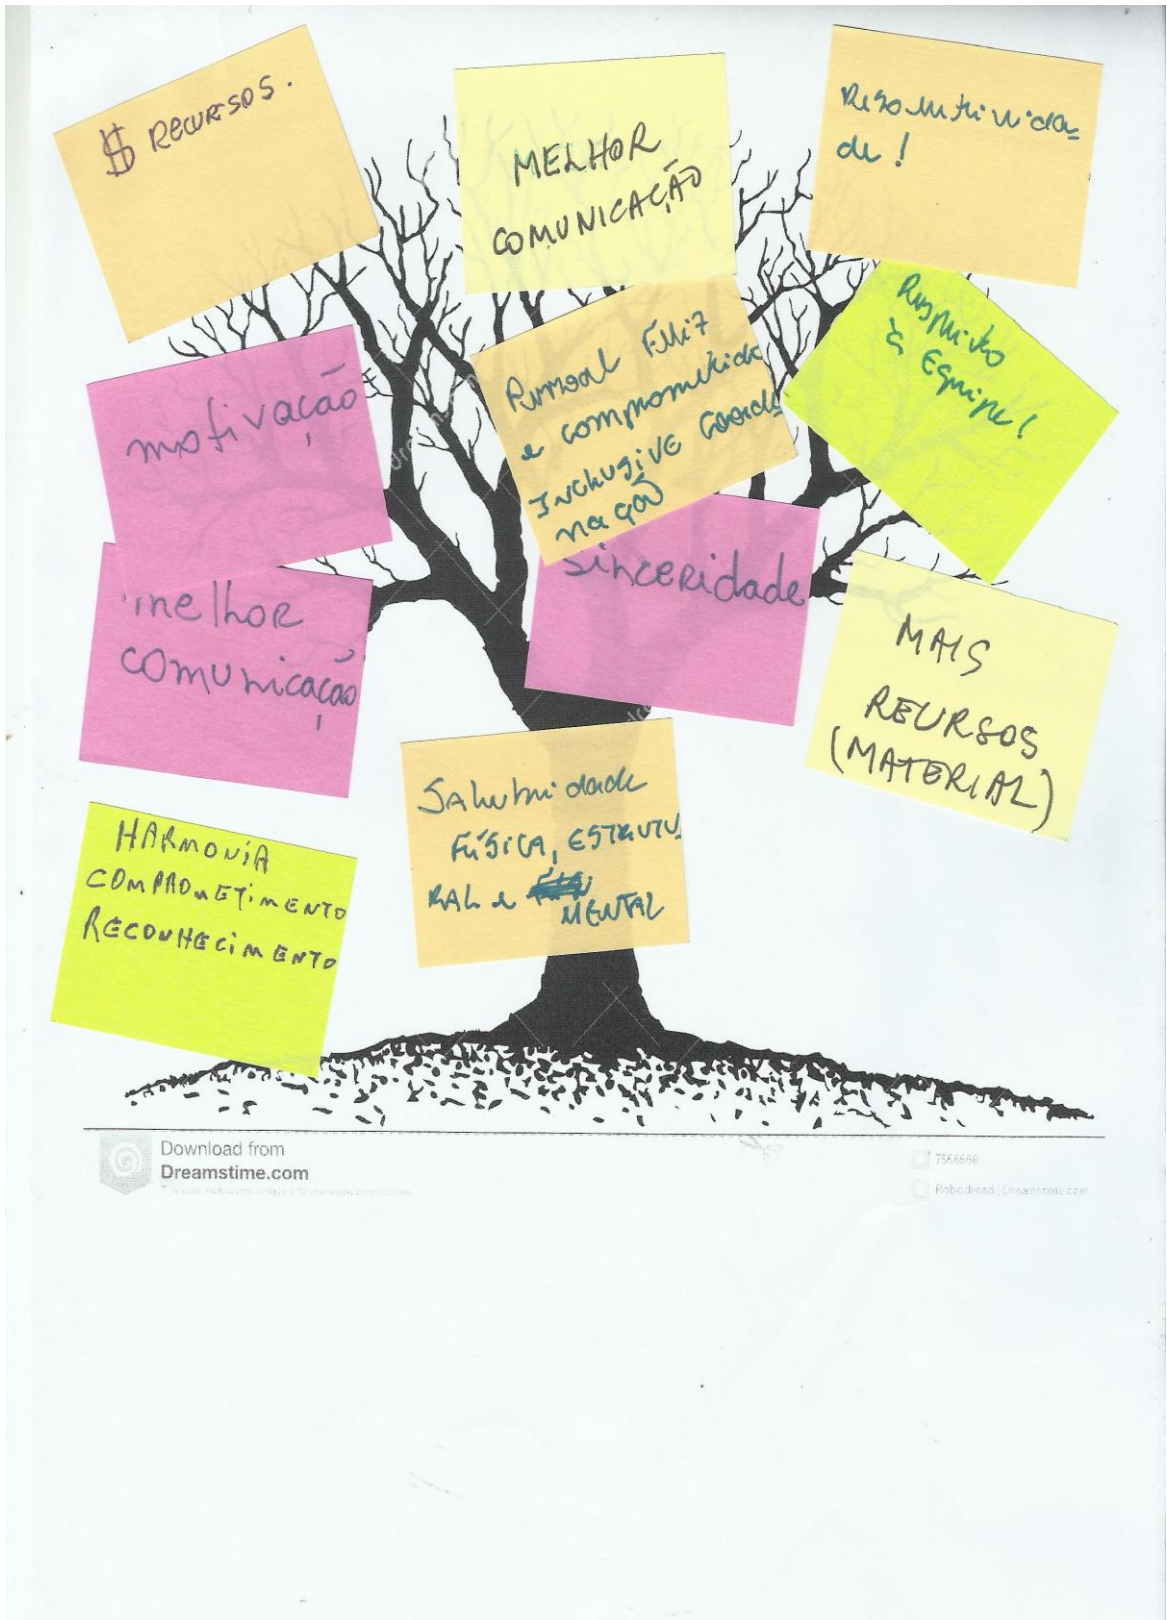 $ RECURSOS.
MELHOR
COMUNICAÇÃO
Resolutivida-
de!
motivação
Pessoal FELIZ
e comprometido
INCLUSIVE COORDE
nação
Respeito
à Equipe!
melhor
comunicação
sinceridade
MAIS
REURSOS
(MATERIAL)
Salubridade
FÍSICA, ESTRUTU
RAL e
MENTAL
HARMONIA
COMPROMETIMENTO
RECONHECIMENTO
Download from
Dreamstime.com
7566668
Robodread | Dreamstime.com